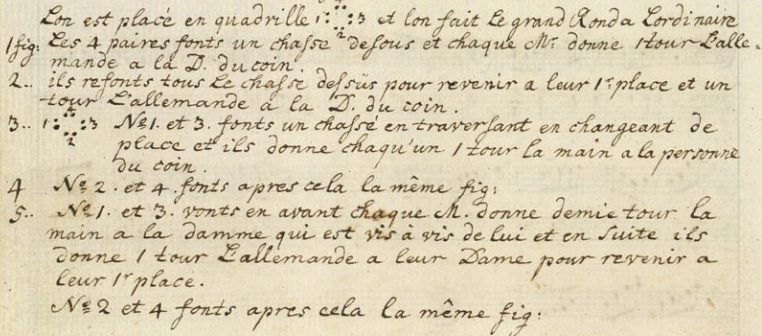 Lon est placé en quadrille 1 : : 3 et lon fait Le grand Ronda Lordinaire
2
1 fig: Les 4 paires fonts un chasse defous et chaque Mr donne 1 tour L'alle-
mande a la D. du coin.
2.. ils refonts tous Le chasse dessüs pour revenir a leur 1r place et un
tour L'allemande a la D. du coin.
3.. 1 : : 3 No 1. et 3. fonts un chassé en traversant en changeant de
2
place et ils donne chaqu'un 1 tour la main a la personne
du coin.
4 No 2. et 4. fonts apres cela la même fig:
5.. No 1. et 3. vonts en avant chaque M. donne demie tour la
main a la damme qui est vis à vis de lui et en suite ils
donne 1 tour L'allemande a leur Dame pour revenir a
leur 1r place.
No 2 et 4 fonts apres cela la même fig: